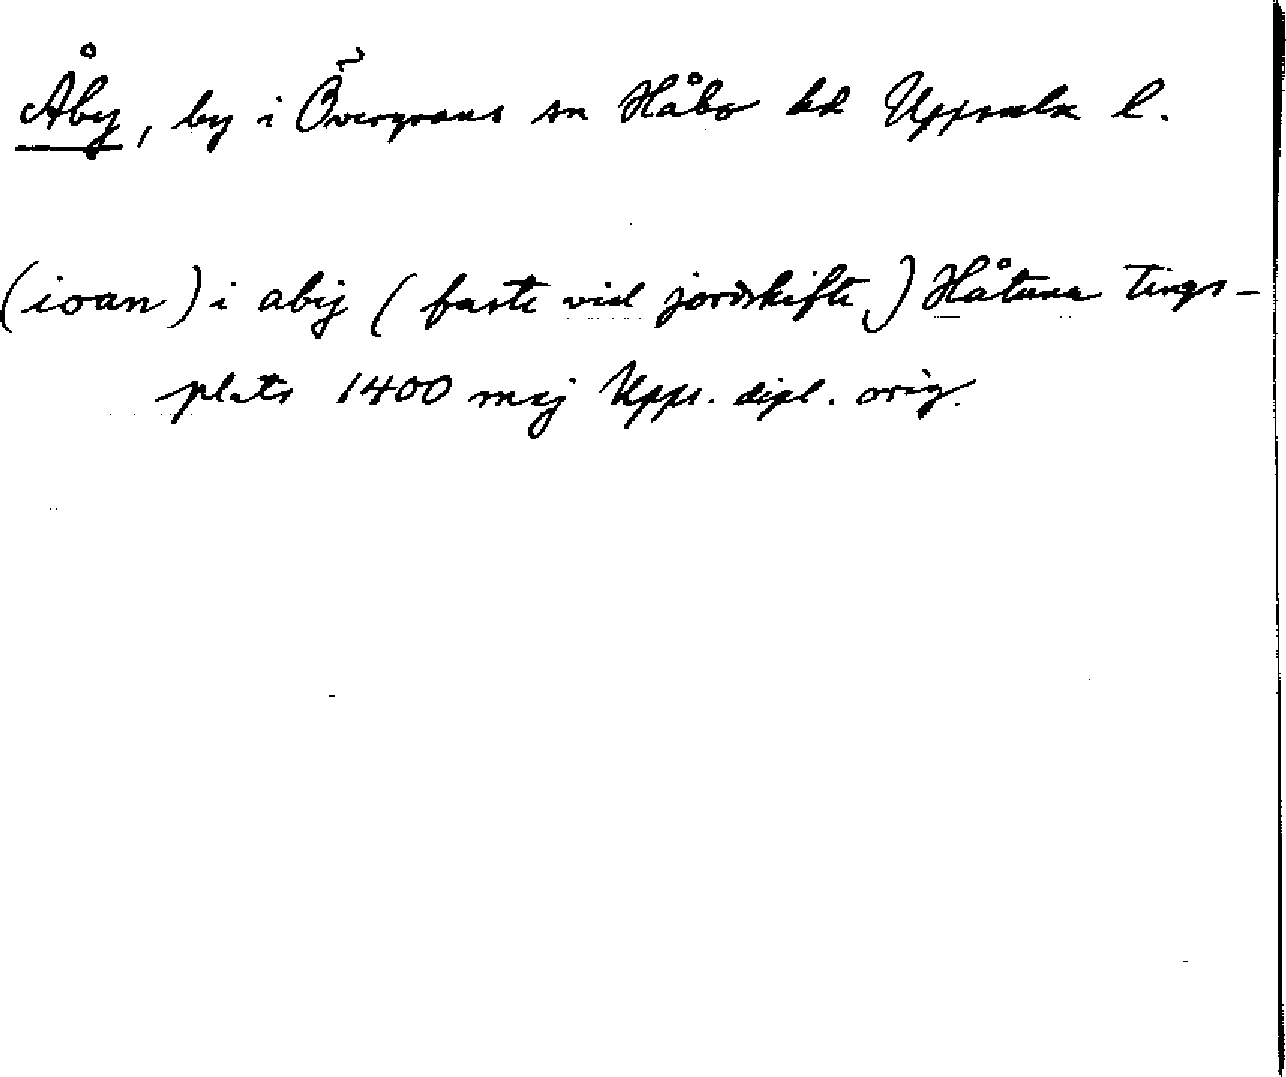 Åby, by i Övergrans sn Håbo hd Uppsala l.
(ioan) i abij (faste vid jordskifte) Håtuna tings-
plats 1400 maj Upps. dipl. orig.